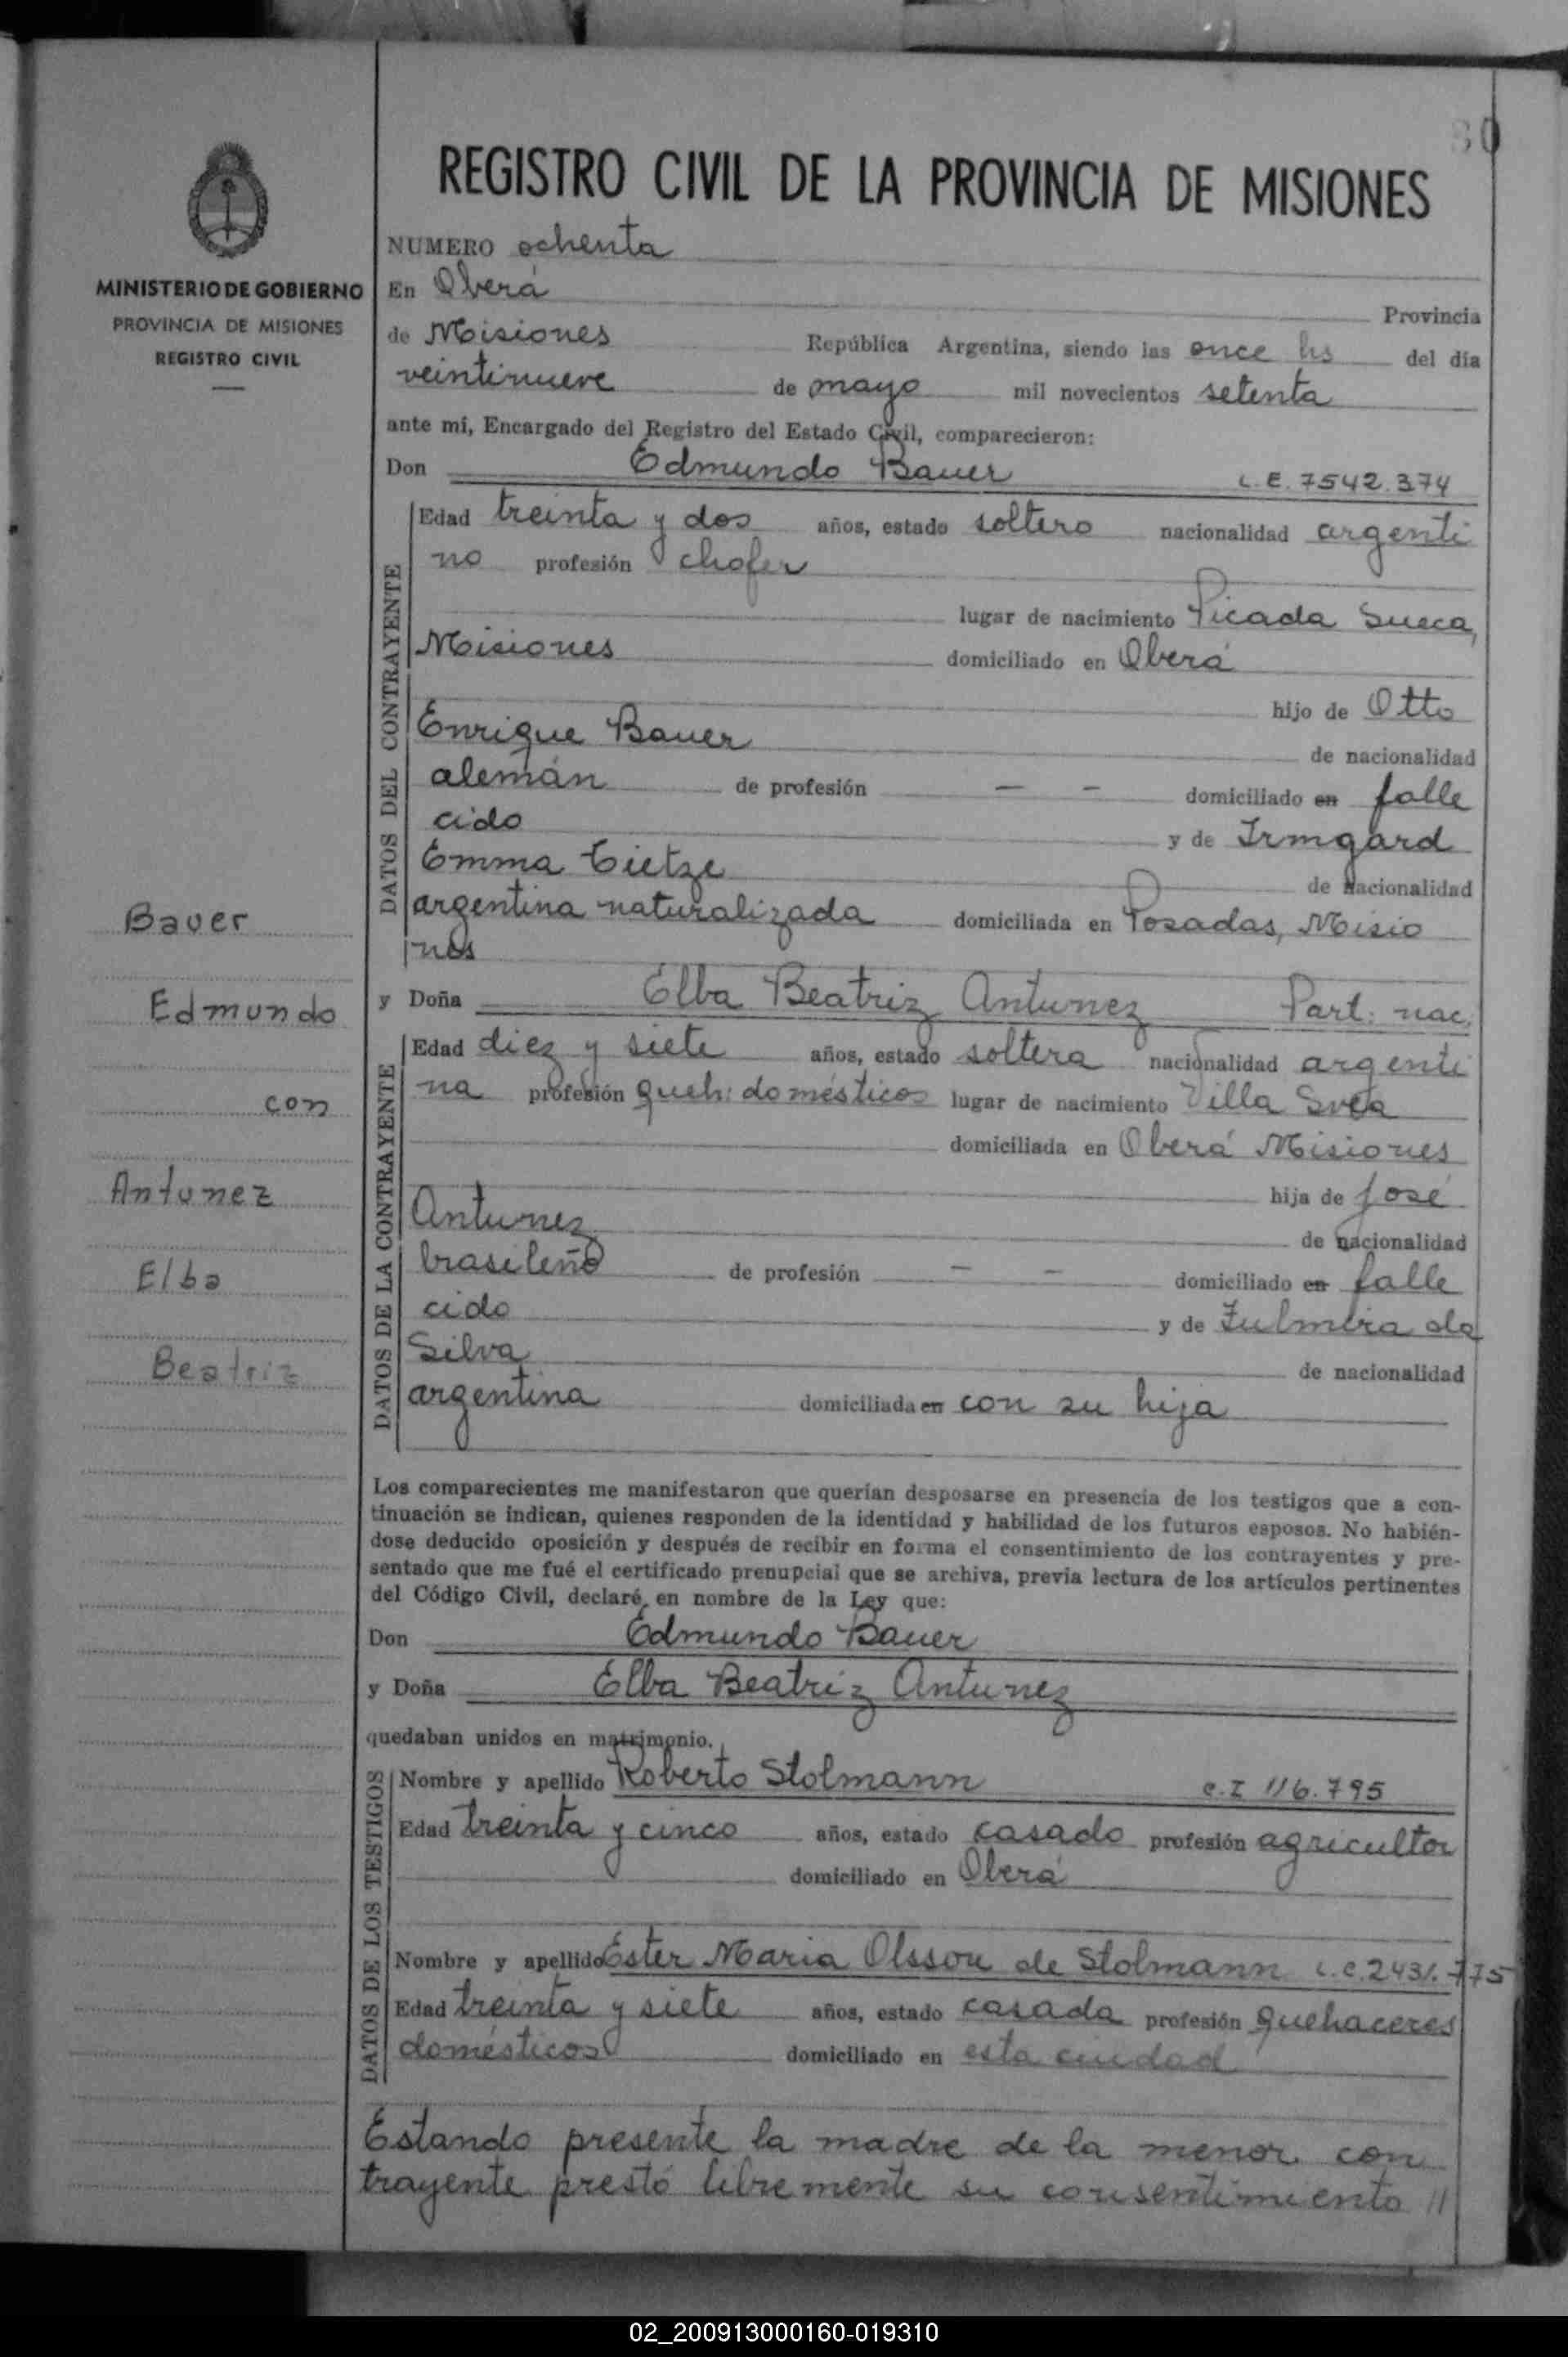 80
REGISTRO CIVIL DE LA PROVINCIA DE MISIONES
MINISTERIO DE GOBIERNO
PROVINCIA DE MISIONES
REGISTRO CIVIL
Bauer
Edmundo
con
Antunez
Elba
Beatriz
NUMERO ochenta
En Oberá Provincia
de Misiones República Argentina, siendo las once hs del día
veintinueve de mayo mil novecientos setenta
ante mí, Encargado del Registro del Estado Civil, comparecieron:
Don Edmundo Bauer L.E. 7542.374
DATOS DEL CONTRAYENTE
Edad treinta y dos años, estado soltero nacionalidad argenti
no profesión chofer
lugar de nacimiento Picada Sueca,
Misiones domiciliado en Oberá
hijo de Otto
Enrique Bauer de nacionalidad
alemán de profesión - - domiciliado en falle
cido y de Irmgard
Emma Tietze de nacionalidad
argentina naturalizada domiciliada en Posadas, Misio
nes
y Doña Elba Beatriz Antunez Part: nac.
DATOS DE LA CONTRAYENTE
Edad diez y siete años, estado soltera nacionalidad argenti
na profesión queh: domésticos lugar de nacimiento Villa Svea
domiciliada en Oberá Misiones
hija de José
Antunez de nacionalidad
brasileño de profesión - - domiciliado en falle
cido y de Zulmira da
Silva de nacionalidad
argentina domiciliada en con su hija
Los comparecientes me manifestaron que querían desposarse en presencia de los testigos que a con-
tinuación se indican, quienes responden de la identidad y habilidad de los futuros esposos. No habién-
dose deducido oposición y después de recibir en forma el consentimiento de los contrayentes y pre-
sentado que me fué el certificado prenupcial que se archiva, previa lectura de los artículos pertinentes
del Código Civil, declaré, en nombre de la Ley que:
Don Edmundo Bauer
y Doña Elba Beatriz Antunez
quedaban unidos en matrimonio.
DATOS DE LOS TESTIGOS
Nombre y apellido Roberto Stolmann C.I 116.795
Edad treinta y cinco años, estado casado profesión agricultor
domiciliado en Oberá
Nombre y apellido Ester Maria Olsson de Stolmann L.C. 2431.775
Edad treinta y siete años, estado casada profesión quehaceres
domésticos domiciliado en esta ciudad
Estando presente la madre de la menor con
trayente prestó libremente su consentimiento //
02_200913000160-019310